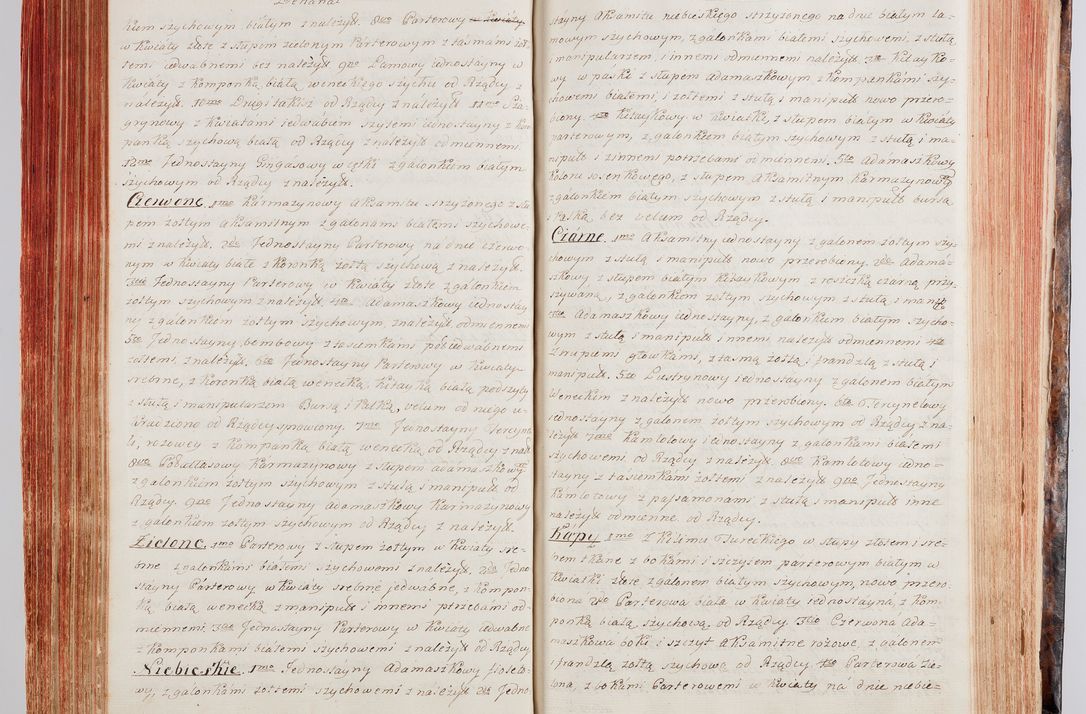 kiem szychowym białym z należyt. 8vo Parterowy w kwiaty
w kwiaty złote z słupem zielonym Parterowym z tasmami żoł-
temi jedwabnemi bez należyt 9no Lamowy jednostayny w
kwiaty z komponką białą weneckiego szychu od Rządcy z
należyt. 10mo Drugi takiż od Rządcy z należyt 11mo Sza-
grynowy z kwiatami jedwabiem szytemi jednostayny z kom-
panką szychową białą od Rządcy z należyt odmiennemi
12mo Jednostayny Grigasowy w cętki z galonkiem białym
szychowym od Rządcy z należyt.
Czerwone. 1mo Karmazynowy Aksamitu strzyżonego z słu-
pem żołtym aksamitnym z galonami białemi szychowe-
mi z należyt. 2do Jednostayny Parterowy na dnie czerwo-
nym w kwiaty białe z koronką żołtą szychową z należyt.
3tio Jednostayny Parterowy w kwiaty złote z galonkiem
żołtym szychowym z należyt 4to Adamaszkowy jednostay-
ny z galonkiem żołtym szychowym, z należyt odmiennemi
5to Jednostayny bombowy z tasiemkami półjedwabnemi
żołtemi, z należyt. 6to Jednostayny Parterowy w kwiaty
srebrne, z koronką białą wenecką, kitayką białą podszyty
z stułą i manipularzem Bursą i Palką, velum od niego u-
kradziono od Rządcy sprawiony. 7mo Jednostayny Tercyne-
li, rozowey z kompanką białą wenecką od Rządcy z należ
8vo Połatłasowy karmazynowy z słupem adamaszkowym
z galonkiem żołtym szychowym z stułą i manipułt od
Rządcy. 9no Jednostayny adamaszkowy karmazynowy
z galonkiem żołtym szychowym od Rządcy z należyt.
Zielone. 1mo Parterowy z słupem żołtym w kwiaty sre-
brne z galonkami białemi szychowemi z należyt. 2do Jedno-
stayny Parterowy w kwiaty srebrne jedwabne, z kompon-
ką białą wenecką, z manipułt i innemi ptrzebami od-
miennemi. 3tio Jednostayny Parterowy w kwiaty jedwabne
z komponkami białemi szychowemi z należyt od Rządcy
Niebieskie. 1mo Jednostayny Adamaszkowy fioleto-
wy, z galonkami żołtemi szychowemi z należyt 2do Jedno-
stayny Aksamitu niebieskiego strzyżonego na dnie białym la-
mowym szychowym, z galonkami białemi szychowemi, z stułą
i manipularzem, i innemi odmiennemi należyt 3tio Kitayko-
wy w paski z słupem adamaszkowym z kompankami szy-
chowemi białemi, i żołtemi z stułą i manipułt nowo przero-
biony. 4to Kitaykowy w kwiatki, z słupem białym w kwiaty
parterowym, z galonkiem białym szychowym z stułą i ma-
nipułt i z innemi potrzebami odmiennemi. 5to Adamaszkowy
koloru sosenkowego, z słupem Aksamitnym karmazynowym
z galonkiem białym szychowym z stułą i manipułt bursą
i palką bez velum od Rządcy.
Czarne. 1mo Aksamitny jednostayny z galonem żołtym szy-
chowym z stułą i manipułt nowo przerobiony. 2do Adama-
szkowy z słupem białym kitaykowym z rosieżką czarną przy-
szywaną, z galonkiem żołtym szychowym z stułą i manipłt
3tio Adamaszkowy jednostayny, z galonkiem białym szycho-
wym z stułą i manipułt i innemi należyt odmiennemi 4to
Z trupiemi głowkami, z tasmą żołtą i frandzlą z stułą i
manipułt. 5to Lustrynowy jednostayny z galonem białym
Weneckim z należyt nowo przerobiony. 6to Tercynelowy
jednostayny z galonem żołtym szychowym od Rządcy z na-
leżyt 7mo Kamlotowy jednostayny z galonkami białemi
szychowemi od Rządcy z należyt. 8vo Kamlotowy jedno-
stayny z tasiemkami żołtemi z należyt 9no Jednostayny
kamlotowy z passamonami z stułą i manipułt inne
należyt odmienne od Rządcy.
Kapy 1mo z Kilimu Tureckiego w słupy złotem i sre-
brem tkane z bokami i szczytem parterowym białym w
kwiatki złote z galonem białym szychowym, nowo przero-
biona 2do Parterowa biała w kwiaty jednostayna, z kom-
ponką białą szychową, od Rządcy. 3tio Czerwona Ada-
maszkowa boki i szczyt Aksamitne rożowe, z galonem
i frandzlą żołtą szychową od Rządcy. 4to Parterowa zie-
lona, z bokami Parterowemi w kwiaty na dnie niebie-